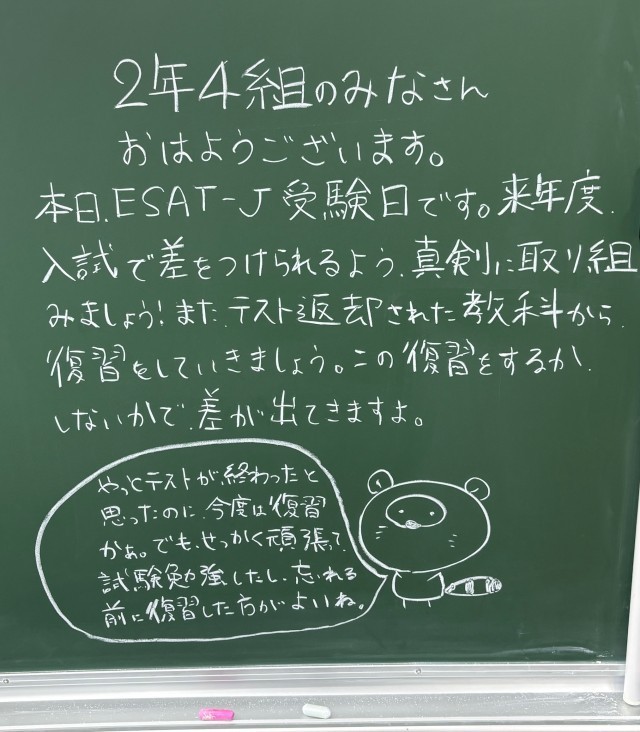 2年4組のみなさん
おはようございます。
本日、ESAT-J受験日です。来年度、
入試で差をつけられるよう、真剣に取り組
みましょう!また、テスト返却された教科から、
復習をしていきましょう。この復習をするか、
しないかで、差が出てきますよ。
やっとテストが終わったと
思ったのに、今度は復習
かぁ。でも、せっかく頑張って
試験勉強したし、忘れる
前に復習した方がよいね。